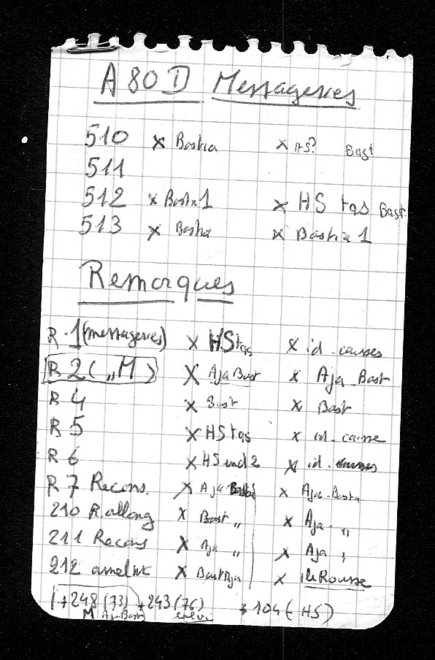 A 80 D Messageries
510 x Bastia x HS? Bast
511
512 x Bastia 1 x HS tas Bast
513 x Bastia x Bastia 1
Remorques
R.1 (messageries) x HS tas x id. causes
R 2 ( ,, M ) x Aja Bast x Aja. Bast
R 4 x Bast x Bast
R 5 x HS tas x id. cause
R 6 x HS x id. causes
R 7 Recons. x Aja x Aja. Bastia
210 R. allong x Bast ,, x Aja. ,,
211 Recons x Aja ,, x Aja ,
212 x Bast Aja x Ile Rousse
+248 (73) +243 (76) 104 (HS)
M Aja Bast